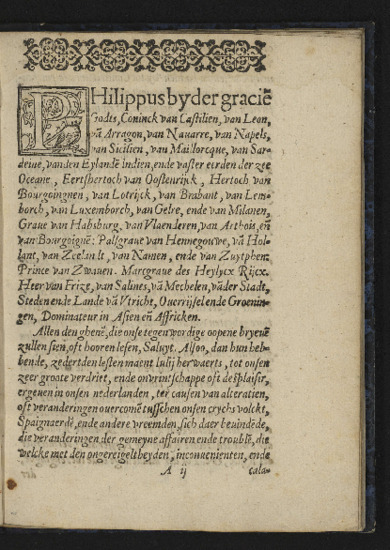 PHilippus by der gracië
Godts, Coninck van Castilien, van Leon,
vã Arragon, van Nauarre, van Napels,
van Sicilien, van Maillorcque, van Sar-
deine, vanden Eylandē indien, ende vaster eerden der zee
Oceane, Eertshertoch van Oostenrijck, Hertoch van
Bourgoingnen, van Lotrijck, van Brabant, van Lem-
borch, van Luxemborch, van Gelre, ende van Milanen,
Graue van Habsburg, van Vlaenderen, van Arthois, eñ
van Bourgoignē: Palsgraue van Hennegouwe, vã Hol-
lant, van Zeelandt, van Namen, ende van Zuytphen:
Prince van Zwauen. Marcgraue des Heylycx Rijcx.
Heer van Frize, van Salines, vã Mechelen, vãder Stadt,
Steden ende Lande vã Vtricht, Ouerrijssel ende Groenin-
gen, Dominateur in Asien eñ Affricken.
Allen den ghenē, die onse tegenwordige oopene bryeuē
zullen sien, oft hooren lesen, Saluyt. Alsoo, dan hun heb-
bende, zedert den lesten maent Iulij herwaerts, tot onsen
zeer groote verdriet, ende onvrintschappe oft desplaisir,
ergeuen in onsen nederlanden, ter causen van alteratien,
oft veranderingen ouercomē tusschen onsen crychs volcke,
Spaignaerdē, ende andere vreemden, sich daer beuindēde,
die veranderingen der gemeyne affairen ende troublē, die
welcke met den ongereigeltheyden, inconuenienten, ende
A ij cala-